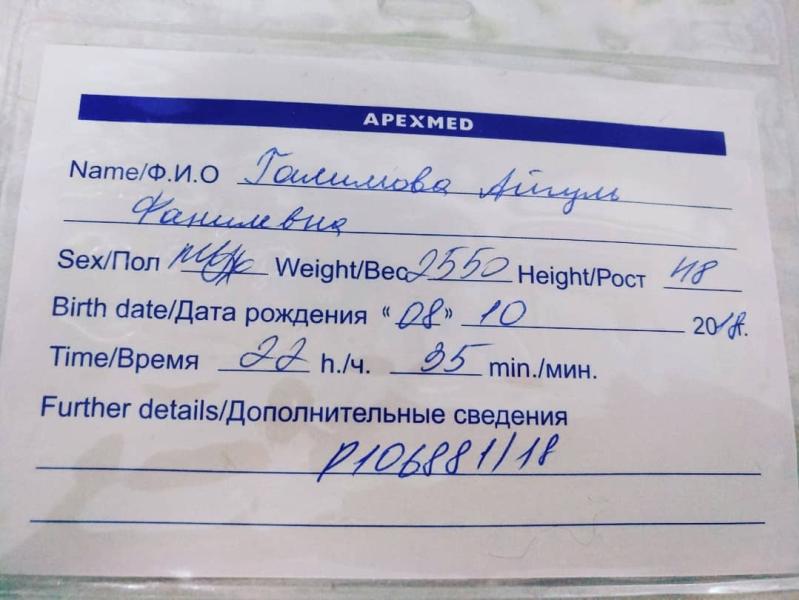 APEXMED
Name/Ф.И.О Галимова Айгуль
Фанилевна
Sex/Пол муж Weight/Вес 2550 Height/Рост 48
Birth date/Дата рождения “08” 10 2018г.
Time/Время 22 h./ч. 35 min./мин.
Further details/Дополнительные сведения
р106881/18